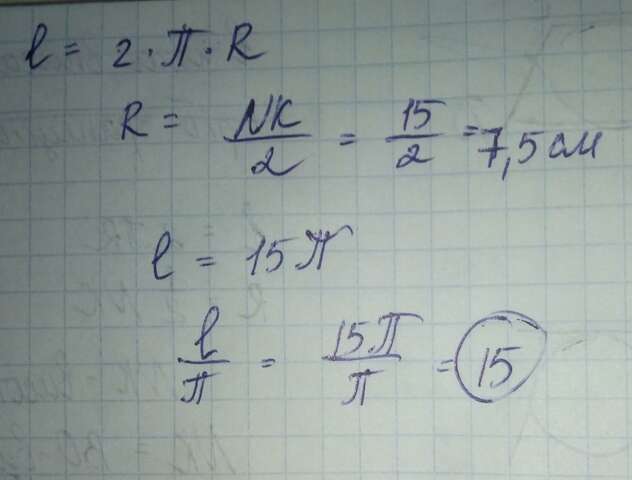 l = 2 · П · R
R = NK/2 = 15/2 = 7,5 см
l = 15П
l/П = 15П/П = 15